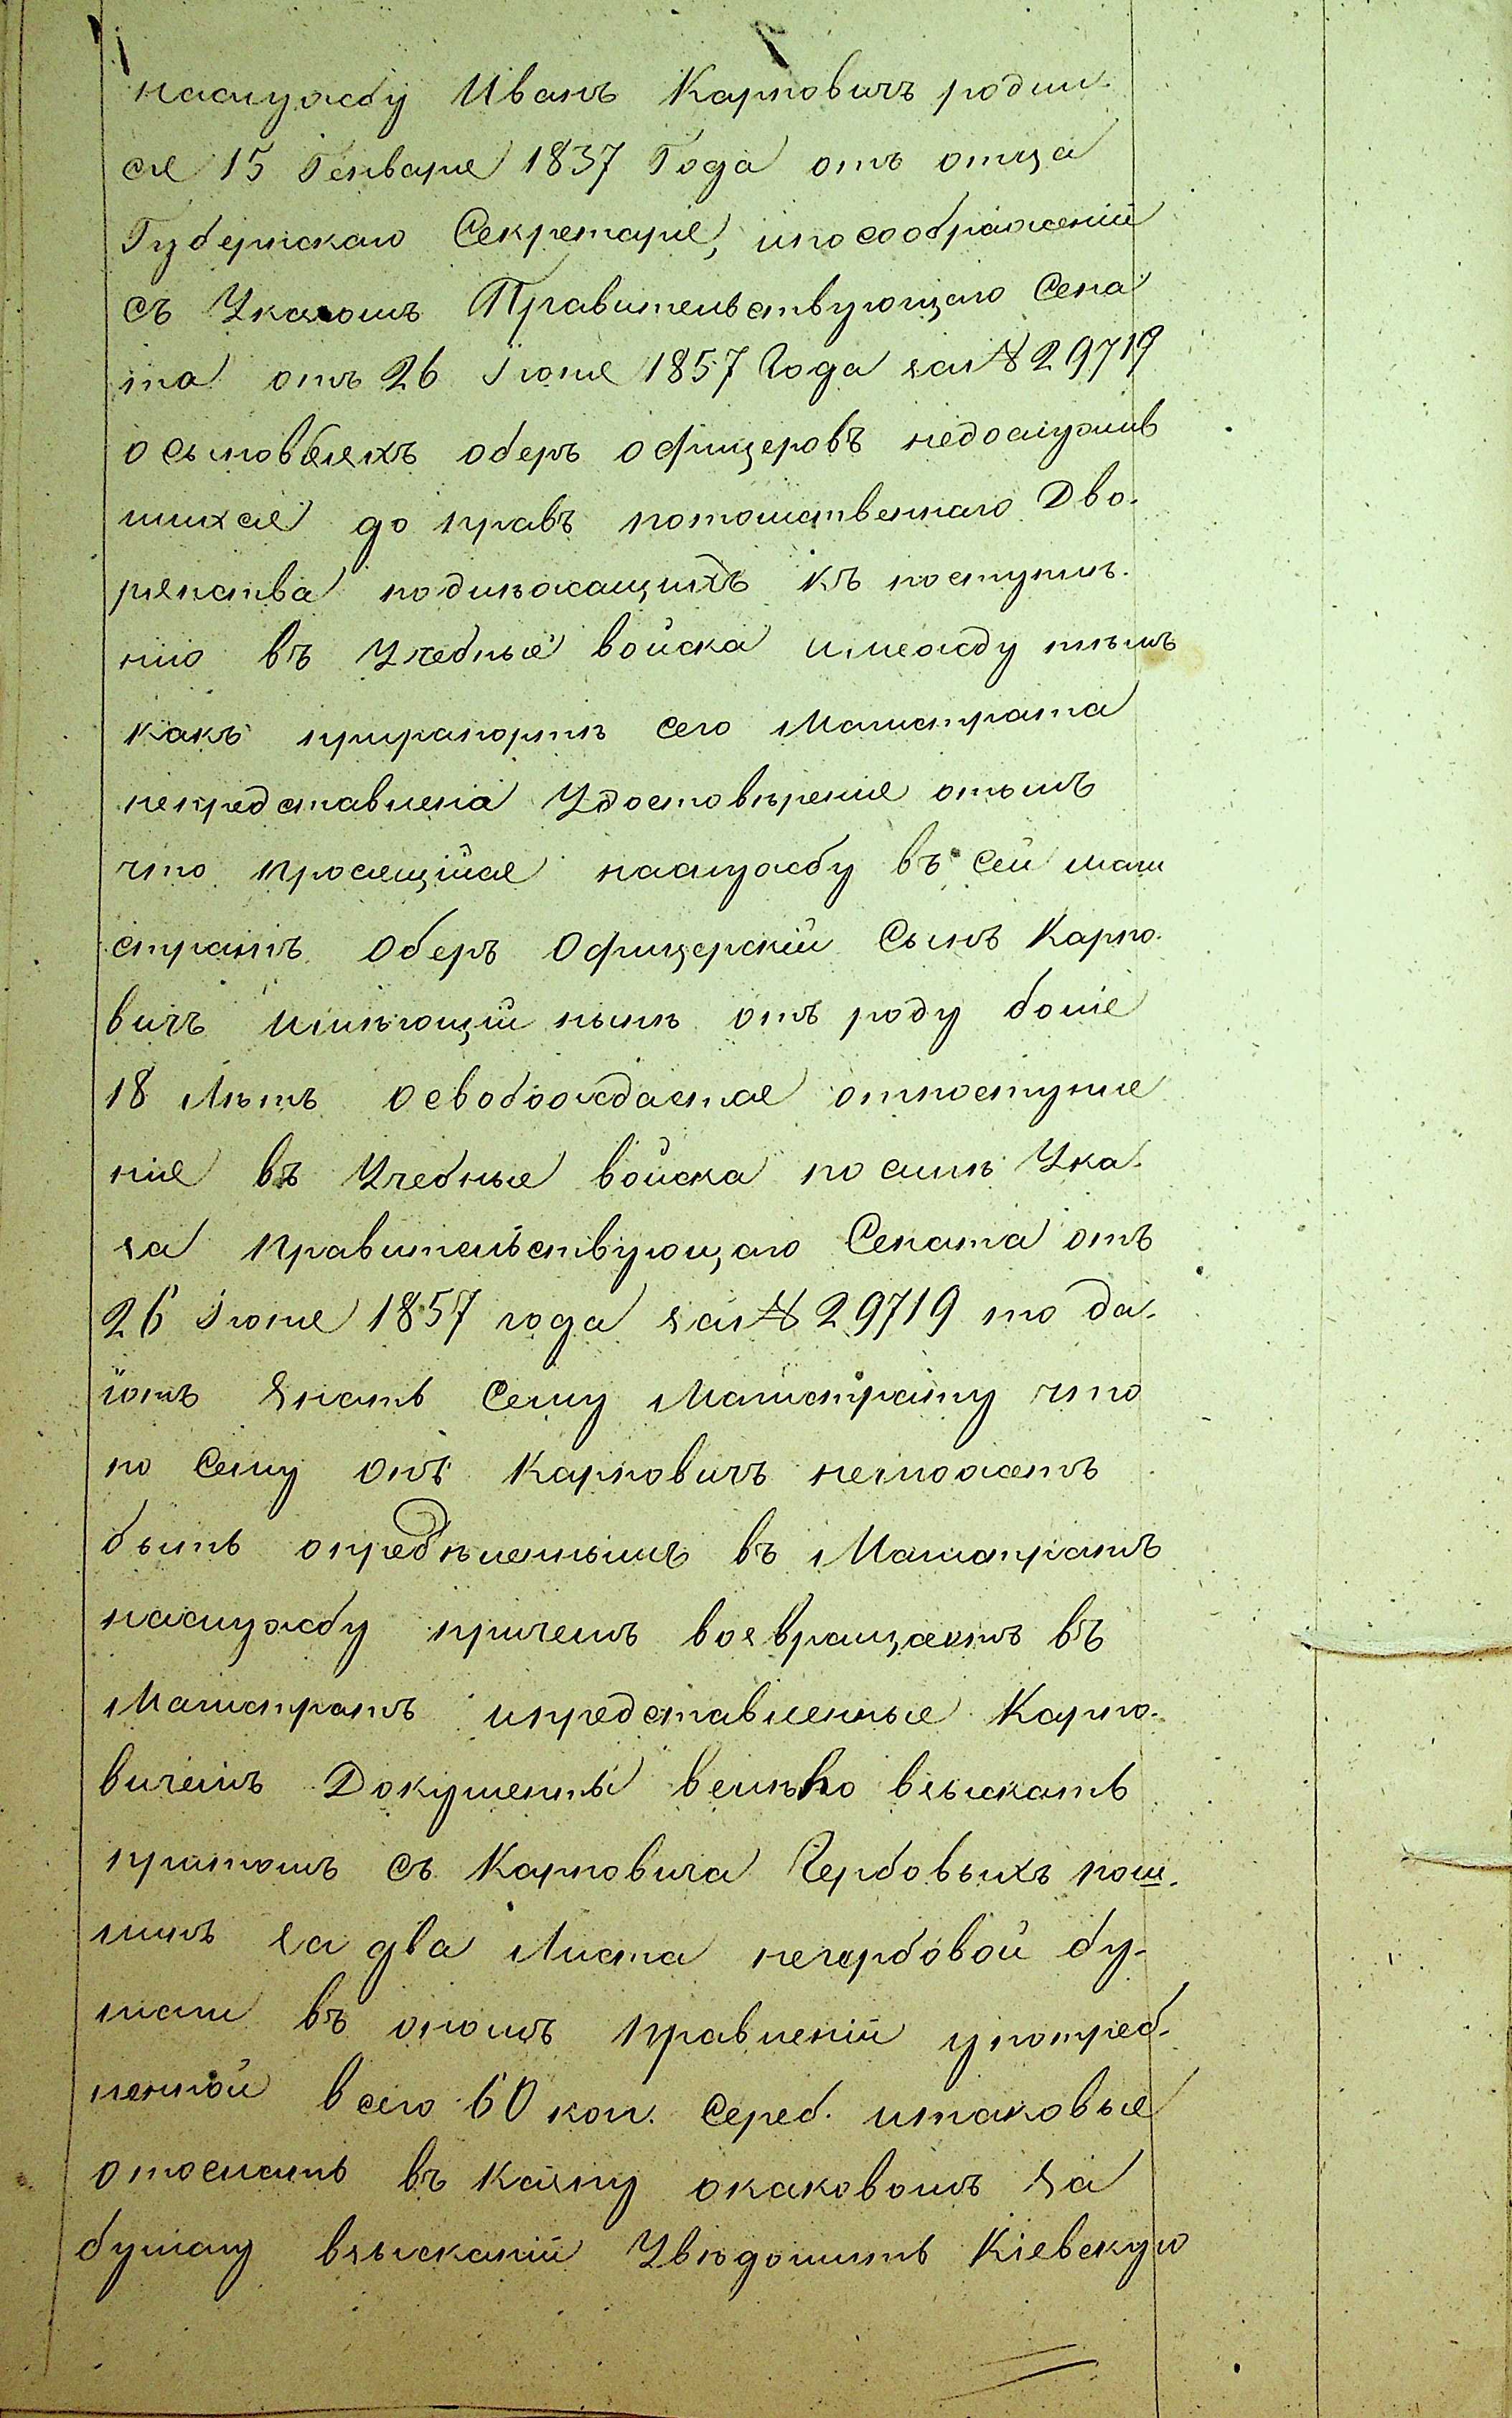 наслужбу Иванъ Карповичъ родил-
ся 15 Генваря 1837 Года отъ отца
Губернскаго Секретаря, ипосоображеніи
съ Указомъ Правительствующаго Сена
та отъ 26 Іюня 1857 Года за № 29719
о сыновьяхъ оберъ офицеровъ недослужив
шихся до правъ потомственнаго Дво-
рянства подлежащихъ къ поступлѣ-
нію въ Учебные войска имежду тѣмъ
какъ прирапортѣ сего Магистрата
непредставлена Удостовѣреніе отомъ
что просящійся наслужбу въ сей маги
стратъ Оберъ Офицерскій Сынъ Карпо-
вичъ имѣющій нынѣ отъ роду болѣе
18 Лѣтъ освобождается отпоступле
нія въ Учебные войска посилѣ Ука-
за Правительствующаго Сената отъ
26 Іюня 1857 года за № 29719 то да-
ютъ Знать Сему Магистрату что
по Сему онъ Карповичъ неможетъ
быть опредѣленнымъ въ Магистратъ
наслужбу причемъ возвращаетъ въ
Магистратъ ипредставленные Карпо-
вичемъ Документы велѣно взыскать
притомъ съ Карповича Гербовыхъ пош-
линъ за два Листа негербовой бу-
маги въ ономъ Правленіи употреб-
ленной всего 60 коп. Сереб. итаковые
отослать въ Казну окаковомъ за
бумагу взысканіи Увѣдомить Кіевскую